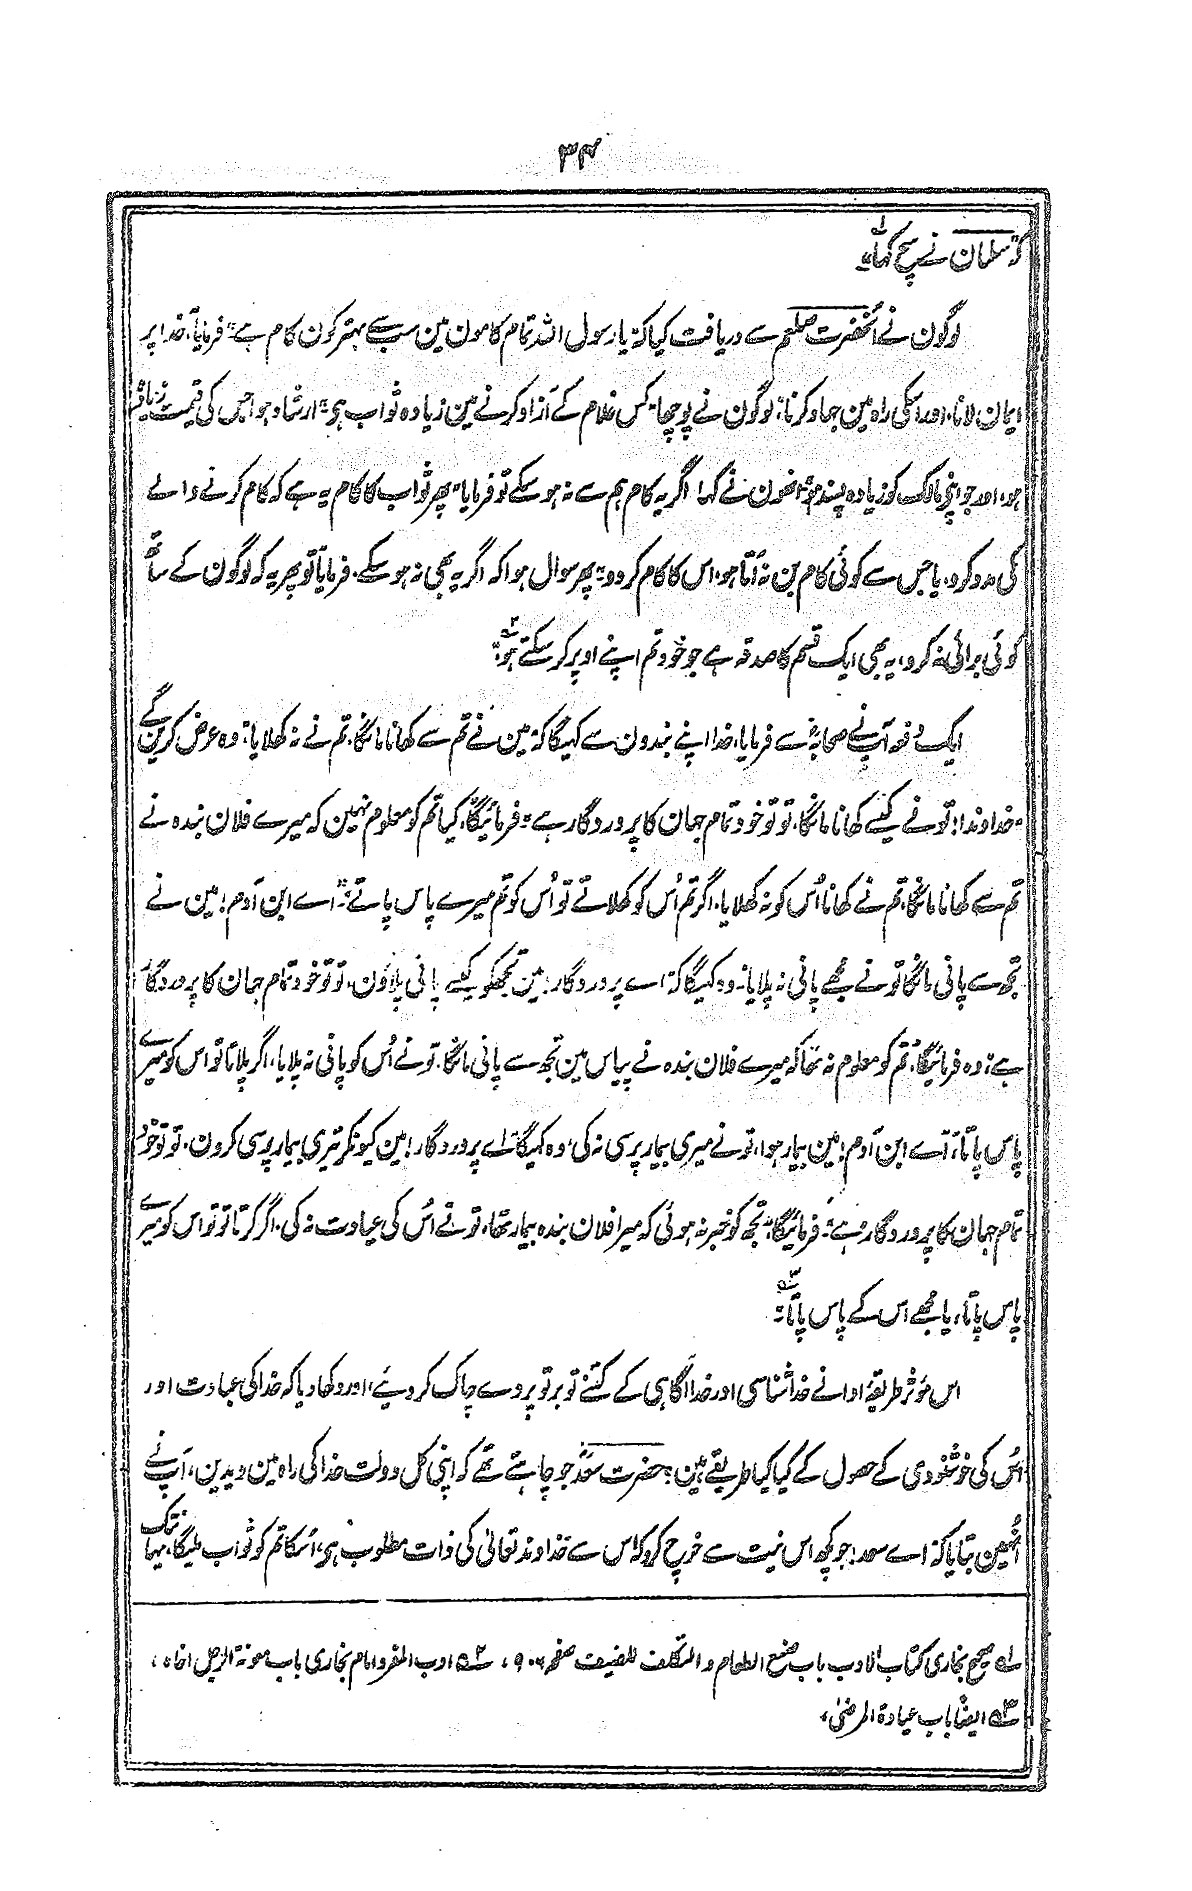 ۳۴
کہ "سلمان نے سچ کہا"
لوگون نے آنحضرت صلعم سے دریافت کیا کہ "یا رسول اللہ تمام کامون مین سب سے بہتر کون کام ہے" فرمایا، "خدا پر
ایمان لانا، اور اسکی راہ مین جہاد کرنا" لوگون نے پوچھا "کس غلام کے آزاد کرنے مین زیادہ ثواب ہی" ارشاد ہوا جس کی قیمت زیادہ
ہو، اور جو اپنے مالک کو زیادہ پسند ہو" انھون نے کہا اگر یہ کام ہم سے نہ ہو سکے تو فرمایا "پھر ثواب کا کام یہ ہے کہ کام کرنے والے
کی مدد کرو، یا جس سے کوئی کام بن نہ آتا ہو، اس کا کام کر دو" پھر سوال ہوا کہ اگر یہ بھی نہ ہو سکے، فرمایا "تو پھر یہ کہ لوگون کے ساتھ
کوئی برائی نہ کرو، یہ بھی ایک قسم کا صدقہ ہے جو خود تم اپنے اوپر کر سکتے ہو"
ایک دفعہ آپ نے صحابہ سے فرمایا، خدا اپنے بندون سے کہیگا کہ "مین نے تم سے کھانا مانگا، تم نے نہ کھلایا" وہ عرض کرین گے
"خداوندا! تو نے کیسے کھانا مانگا، تو تو خود تمام جہان کا پروردگار ہے" فرمائیگا، "کیا تم کو معلوم نہین کہ میرے فلان بندہ نے
تم سے کھانا مانگا، تم نے کھانا اُس کو نہ کھلایا، اگر تم اُس کو کھلاتے تو اُس کو تم میرے پاس پاتے" "اے ابن آدم! مین نے
تجھ سے پانی مانگا تو نے مجھے پانی نہ پلایا" وہ کہیگا کہ "اے پروردگار! مین تجھکو کیسے پانی پلاؤن، تو تو خود تمام جہان کا پروردگار
ہے" وہ فرمائیگا، "تم کو معلوم نہ تھا کہ میرے فلان بندہ نے پیاس مین تجھ سے پانی مانگا، تو نے اُس کو پانی نہ پلایا، اگر پلاتا تو اس کو میرے
پاس پاتا، اے ابن آدم! مین بیمار ہوا، تو نے میری بیمار پرسی نہ کی" وہ کہیگا "اے پروردگار! مین کیونکر تیری بیمار پرسی کرون، تو تو خود
تمام جہان کا پروردگار ہے" فرمائیگا، "تجھ کو خبر نہ ہوئی کہ میرا فلان بندہ بیمار تھا، تو نے اُس کی عیادت نہ کی، اگر کرتا تو تو اس کو میرے
پاس پاتا، یا مجھے اس کے پاس پاتا"
اس مؤثر طریقۂ ادا نے خدا شناسی اور خدا آگاہی کے کتنے تو بر تو پردے چاک کر دیئے، اور دکھا دیا کہ خدا کی عبادت اور
اُس کی خوشنودی کے حصول کے کیا کیا طریقے ہین، حضرت سعد جو چاہتے تھے کہ اپنی کل دولت خدا کی راہ مین دیدین، آپ نے
اُنھین بتایا کہ "اے سعد! جو کچھ اس نیت سے خرچ کرو کہ اس سے خداوند تعالیٰ کی ذات مطلوب ہی، اُسکا تم کو ثواب ملیگا، یہانتک
لے صحیح بخاری کتاب الادب باب صنع الطعام والتکلف للضیف صفحہ ۹۰۶، ۲ے ادب المفرد امام بخاری باب معونۃ الرجل اخاہ،
۳ے ایضاً باب عیادۃ المرضیٰ،